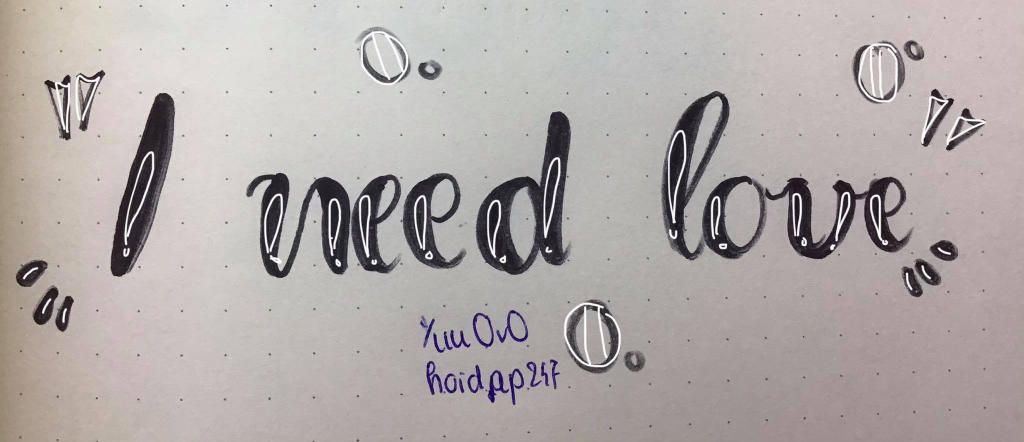 I need love
Yuu OvO
hoidap247